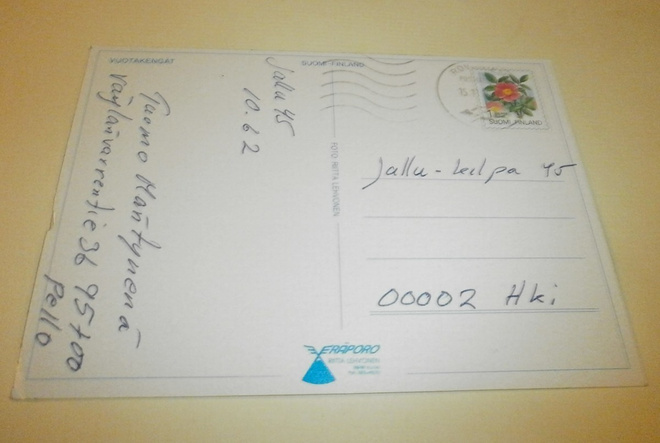 VUOTAKENGÄT
SUOMI FINLAND
Jallu 45
10.62
Tuomo Mäntynenä
Väylänvarrentie 36 95700
Pello
FOTO RIITTA LEHTONEN
SUOMI FINLAND
Jallu-kilpa 45
00002 Hki
ERÄPORO
RIITTA LEHTONEN